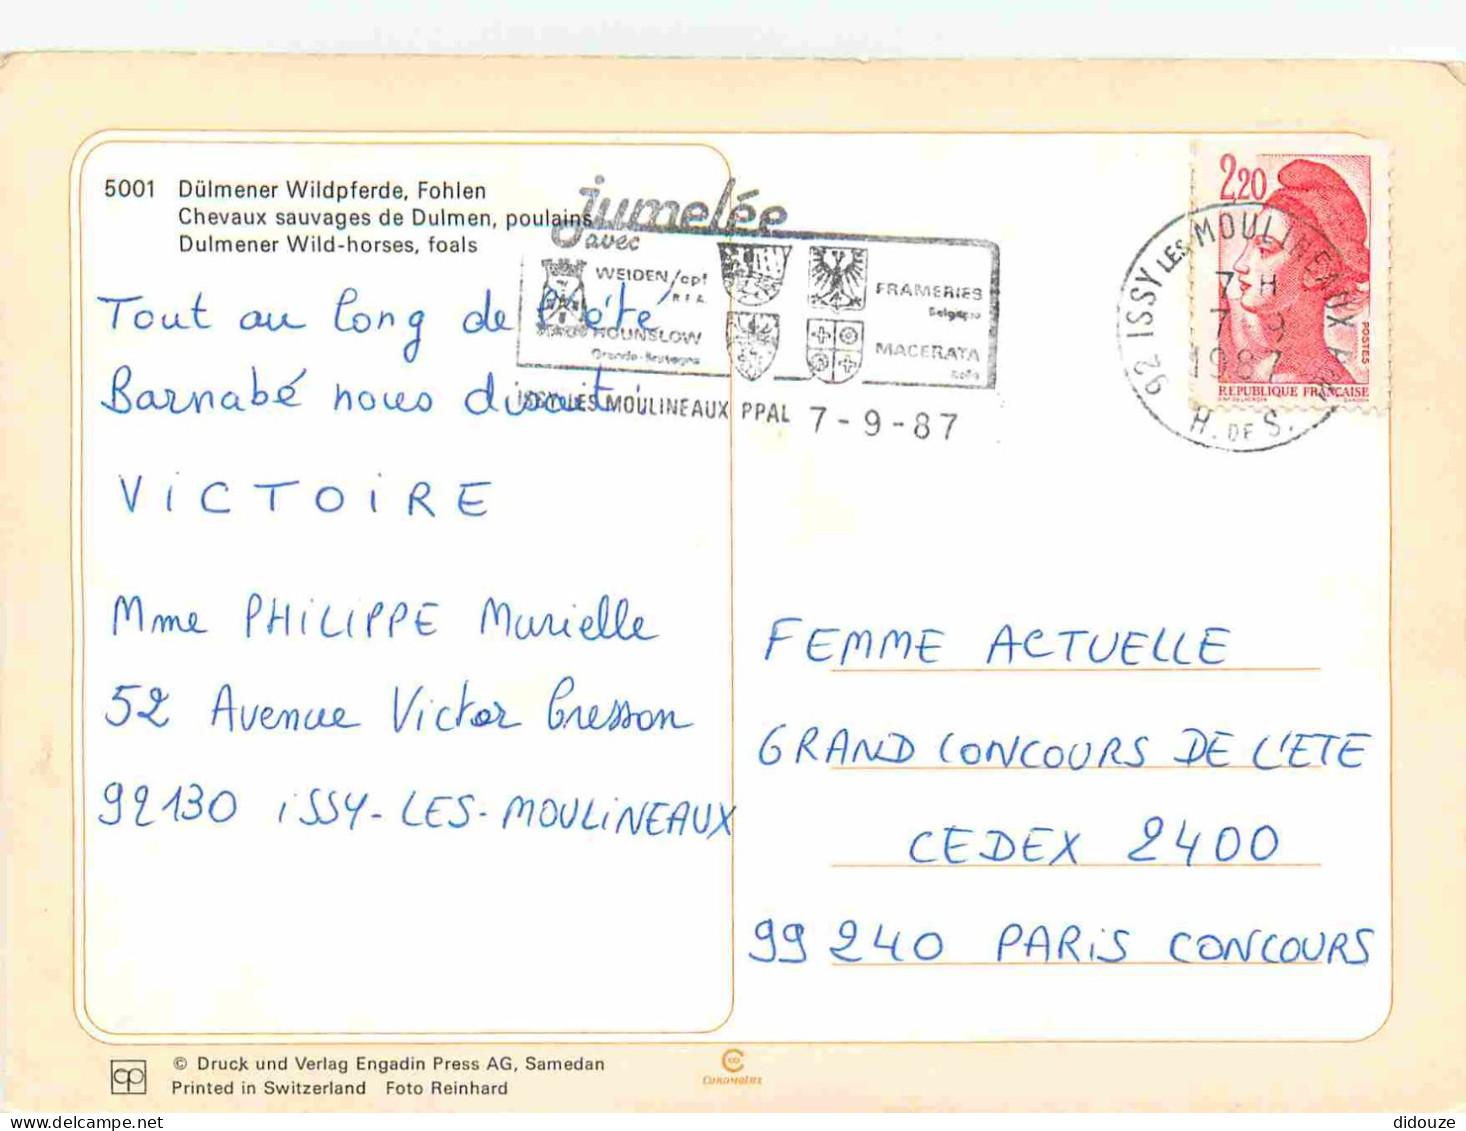 5001 Dülmener Wildpferde, Fohlen
Chevaux sauvages de Dulmen, poulains
Dulmener Wild-horses, foals
jumelée
avec
WEIDEN/opf
R.F.A.
HOUNSLOW
Grande-Bretagne
FRAMERIES
Belgique
MACERATA
ISSY LES MOULINEAUX PPAL 7-9-87
2,20
POSTES
REPUBLIQUE FRANÇAISE
92 ISSY LES MOULINEAUX
7 H
7 9
1987
H. DE S.
Tout au long de l'été
Barnabé nous disait
VICTOIRE
Mme PHILIPPE Murielle
52 Avenue Victor Cresson
92130 ISSY-LES-MOULINEAUX
FEMME ACTUELLE
GRAND CONCOURS DE L'ETE
CEDEX 2400
99240 PARIS CONCOURS
© Druck und Verlag Engadin Press AG, Samedan
Printed in Switzerland Foto Reinhard
delcampe.net
didouze